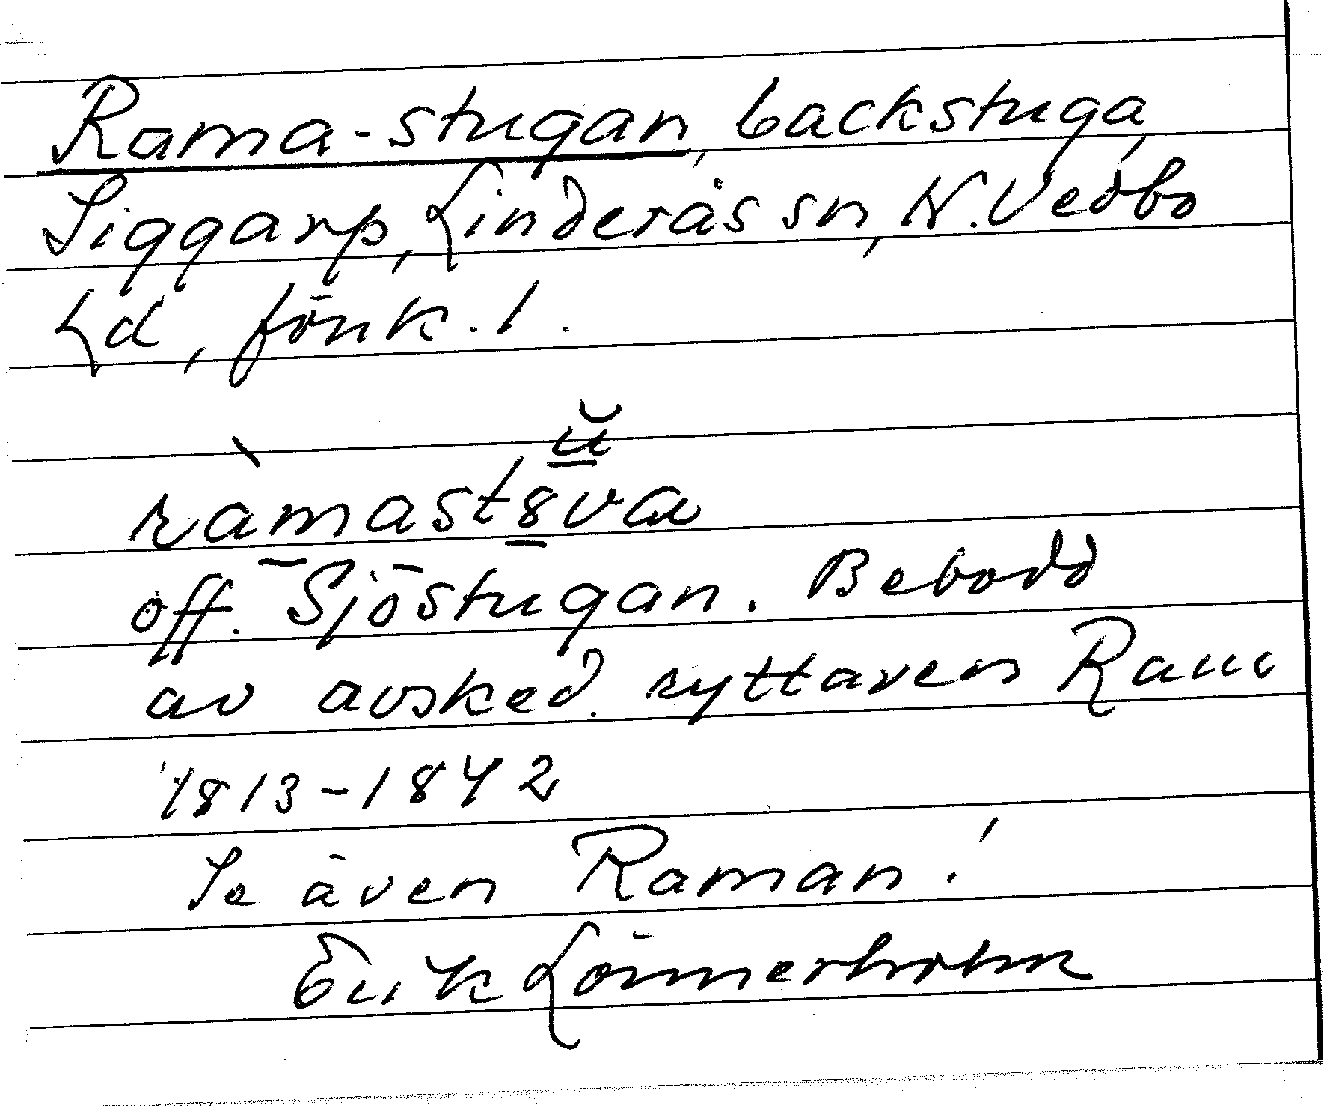 Rama-stugan, backstuga,
Siggarp, Linderås sn, N. Vedbo
hd, Jönk. l.
ŭ
ràmastȣva
off. Sjöstugan. Bebodd
av avsked. ryttaren Ram
1813-1842
Se även Raman!
Erik Lönnerholm